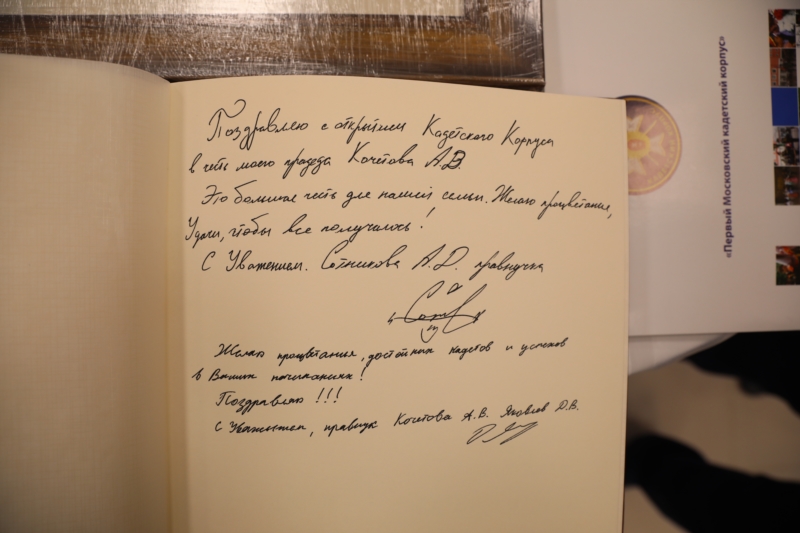 Поздравляю с открытием Кадетского Корпуса
в честь моего прадеда Кочетова А.В.
Это большая честь для нашей семьи. Желаю процветания,
Удачи, чтобы все получилось!
С Уважением. Сотникова А.Д. правнучка
Желаю процветания, достойных кадетов и успехов
в Ваших начинаниях!
Поздравляю!!!
С Уважением, правнук Кочетова А.В. Яковлев Д.В.
«Первый Московский кадетский корпус»